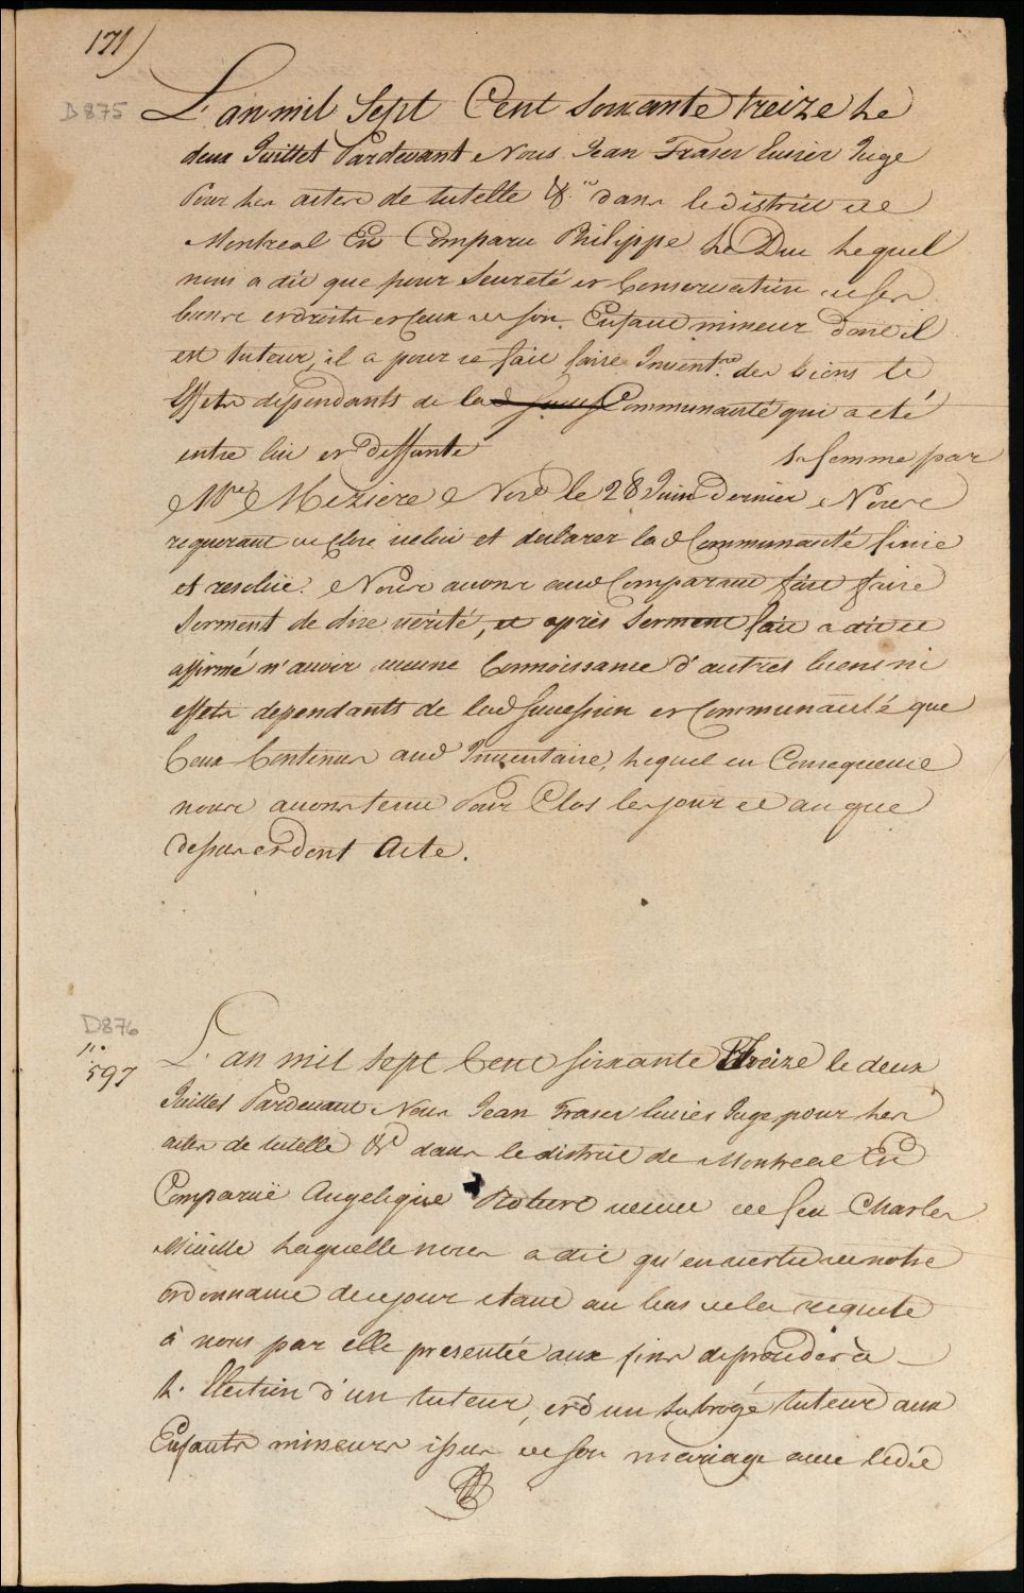 171)
D875
L'an mil Sept Cent Soixante treize Le
deux Juillet Pardevant Nous Jean Fraser Ecuier Juge
Pour les actes de tutelle &c dans le district de
Montreal Est Comparu Philippe Le Duc Lequel
nous a dit que pour Seureté et Conservation de ses
biens et droits et Ceux de son Enfant mineur dont il
est tuteur, il a pour ce fait faire Inventre des biens et
Effets dependants de lad Communauté qui a eté
entre lui et Deffunte sa femme par
Mre Meziere Nore le 28 Juin Dernier Nous
requerant de Clore icelui et declarer lad Communauté finie
et resolüe. Nous avons aud Comparant fait faire
Serment de dire vérité, et après Serment fait a dit et
affirmé n'avoir aucune Connoissance d'autres biens ni
effets dependants de lad Succession et Communauté que
Ceux Contenus aud Inventaire, Lequel en Consequence
nous avons tenu Pour Clos les jour et an que
dessus et dont Acte.
D876
no
597
L'an mil Sept Cent Soixante treize le deux
Juillet Pardevant Nous Jean Fraser Ecuier Juge pour Les
actes de tutelle &c dans le district de Montreal Est
Comparuë Angelique veuve de feu Charles
Laquelle nous a dit qu'en vertu de notre
ordonnance de ce jour etant au bas de la requete
à nous par elle presentée aux fins de proceder à
L'Election d'un tuteur, et d'un Subrogé tuteur aux
Enfants mineurs issus de son mariage avec ledit